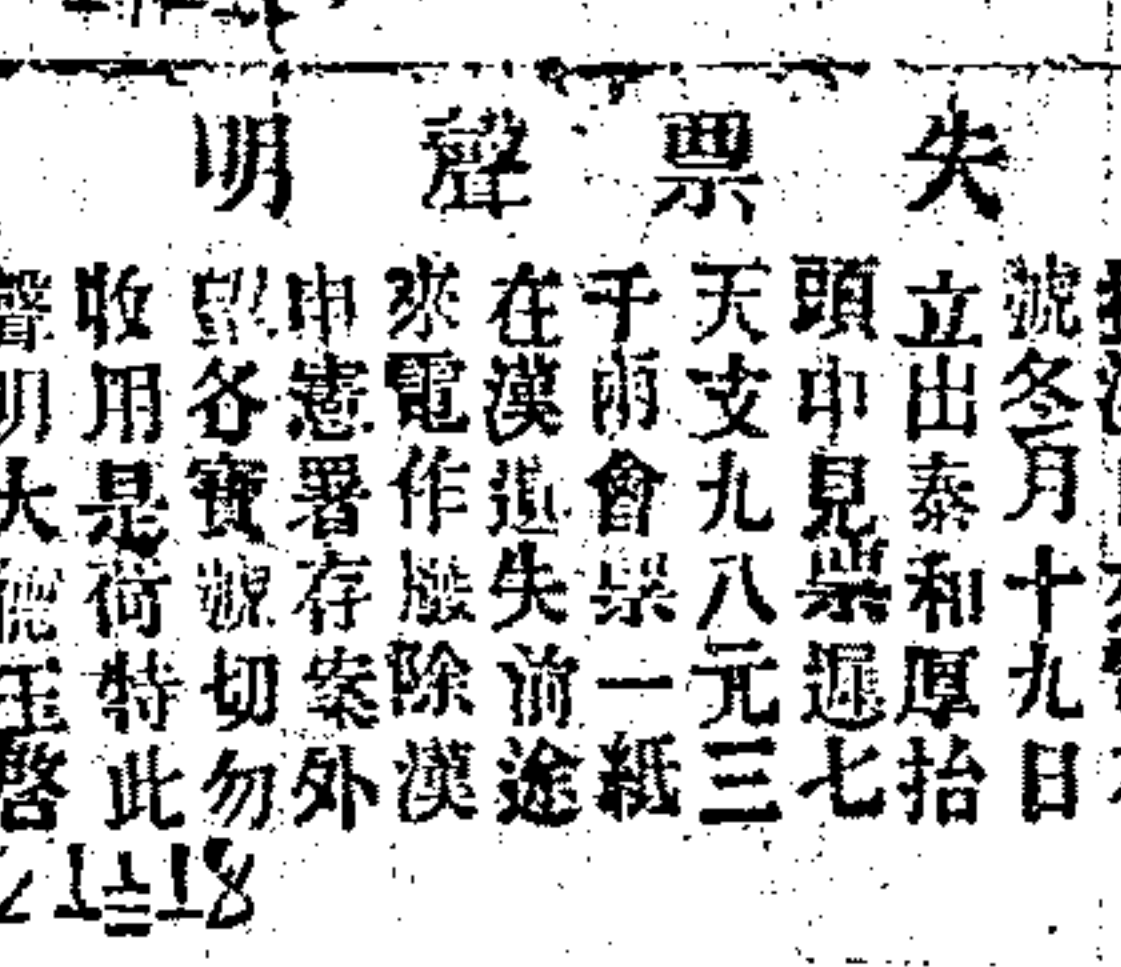 失票聲明
號冬月十九日
立出泰和厚抬
頭申見票遲七
天支九八元三
千兩會票一紙
在漢遺失前途
來電作廢除漢
申憲署存案外
望各寶號切勿
收用是荷特此
聲明大德玉啓